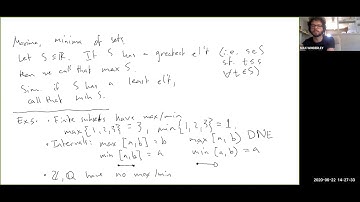 Maxima, minima of sets
Let S ⊆ ℝ. If S has a greatest el't (i.e. s∈S
then we call that max S. s.t. t≤s
Sim. if S has a least el't, ∀t∈S)
call that min S.
Exs. • Finite subsets have max/min
max{1,2,3} = 3, min{1,2,3} = 1.
• Intervals: max [a,b] = b max [a,b) DNE
min [a,b] = a min [a,b) = a
• ℤ, ℚ have no max/min
2020-06-22 14:27:33